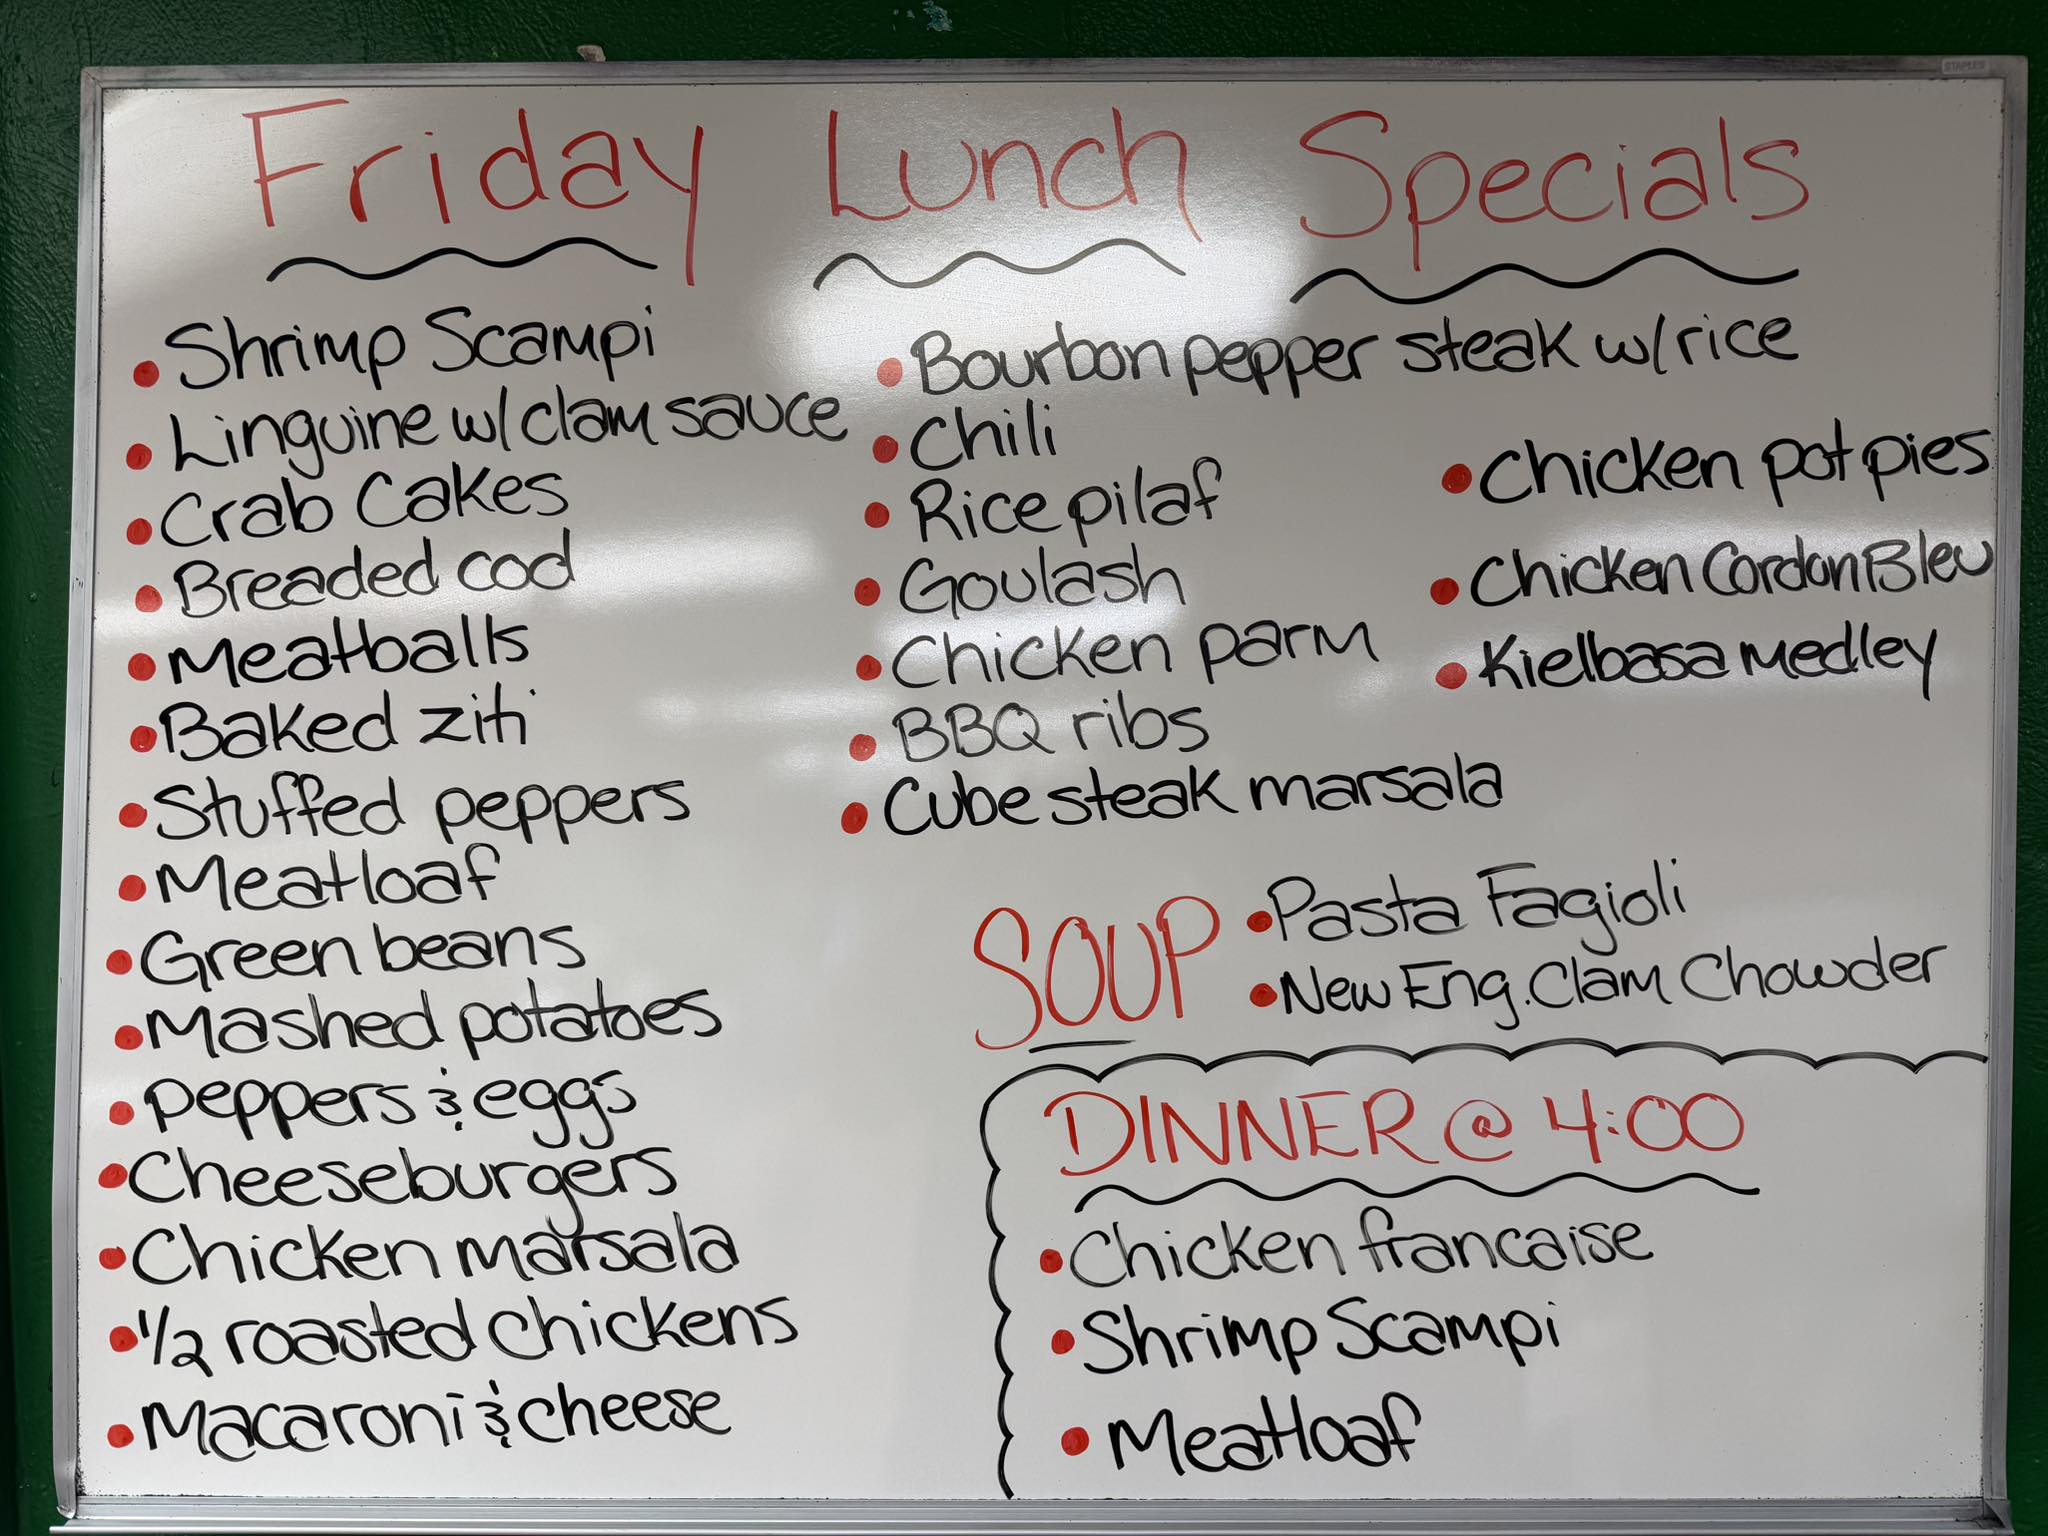 STAPLES
Friday Lunch Specials
• Shrimp Scampi
• Linguine w/ clam sauce
• Crab Cakes
• Breaded cod
• Meatballs
• Baked ziti
• Stuffed peppers
• Meatloaf
• Green beans
• Mashed potatoes
• peppers & eggs
• Cheeseburgers
• Chicken marsala
• 1/2 roasted chickens
• Macaroni & cheese
• Bourbon pepper steak w/ rice
• Chili
• Rice pilaf
• Goulash
• Chicken parm
• BBQ ribs
• Cube steak marsala
• Chicken pot pies
• Chicken Cordon Bleu
• Kielbasa medley
SOUP
• Pasta Fagioli
• New Eng. Clam Chowder
DINNER @ 4:00
• Chicken francaise
• Shrimp Scampi
• Meatloaf